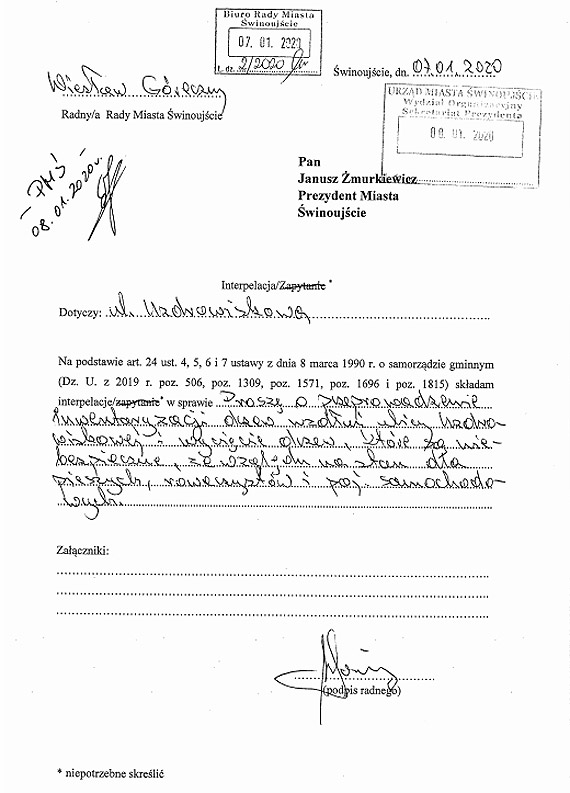 Biuro Rady Miasta
Świnoujście
07. 01. 2020
L. dz. 2/2020
Świnoujście, dn. 07.01.2020
Wiesław Góreczny
Radny/a Rady Miasta Świnoujście
URZĄD MIASTA ŚWINOUJŚCIE
Wydział Organizacyjny
Sekretariat Prezydenta
08. 01. 2020
- PMŚ -
08.01.2020r.
Pan
Janusz Żmurkiewicz
Prezydent Miasta
Świnoujście
Interpelacja/Zapytanie *
Dotyczy: ul. Uzdrowiskową
Na podstawie art. 24 ust. 4, 5, 6 i 7 ustawy z dnia 8 marca 1990 r. o samorządzie gminnym
(Dz. U. z 2019 r. poz. 506, poz. 1309, poz. 1571, poz. 1696 i poz. 1815) składam
interpelacje/zapytanie* w sprawie Proszę o przeprowadzenie
Inwentaryzacji drzew wzdłuż ulicy Uzdro-
wiskowej i wycięcie drzew, które są nie-
bezpieczne, ze względu na stan dla
pieszych, rowerzystów i poj. samochodo-
wych.
Załączniki:
(podpis radnego)
* niepotrzebne skreślić